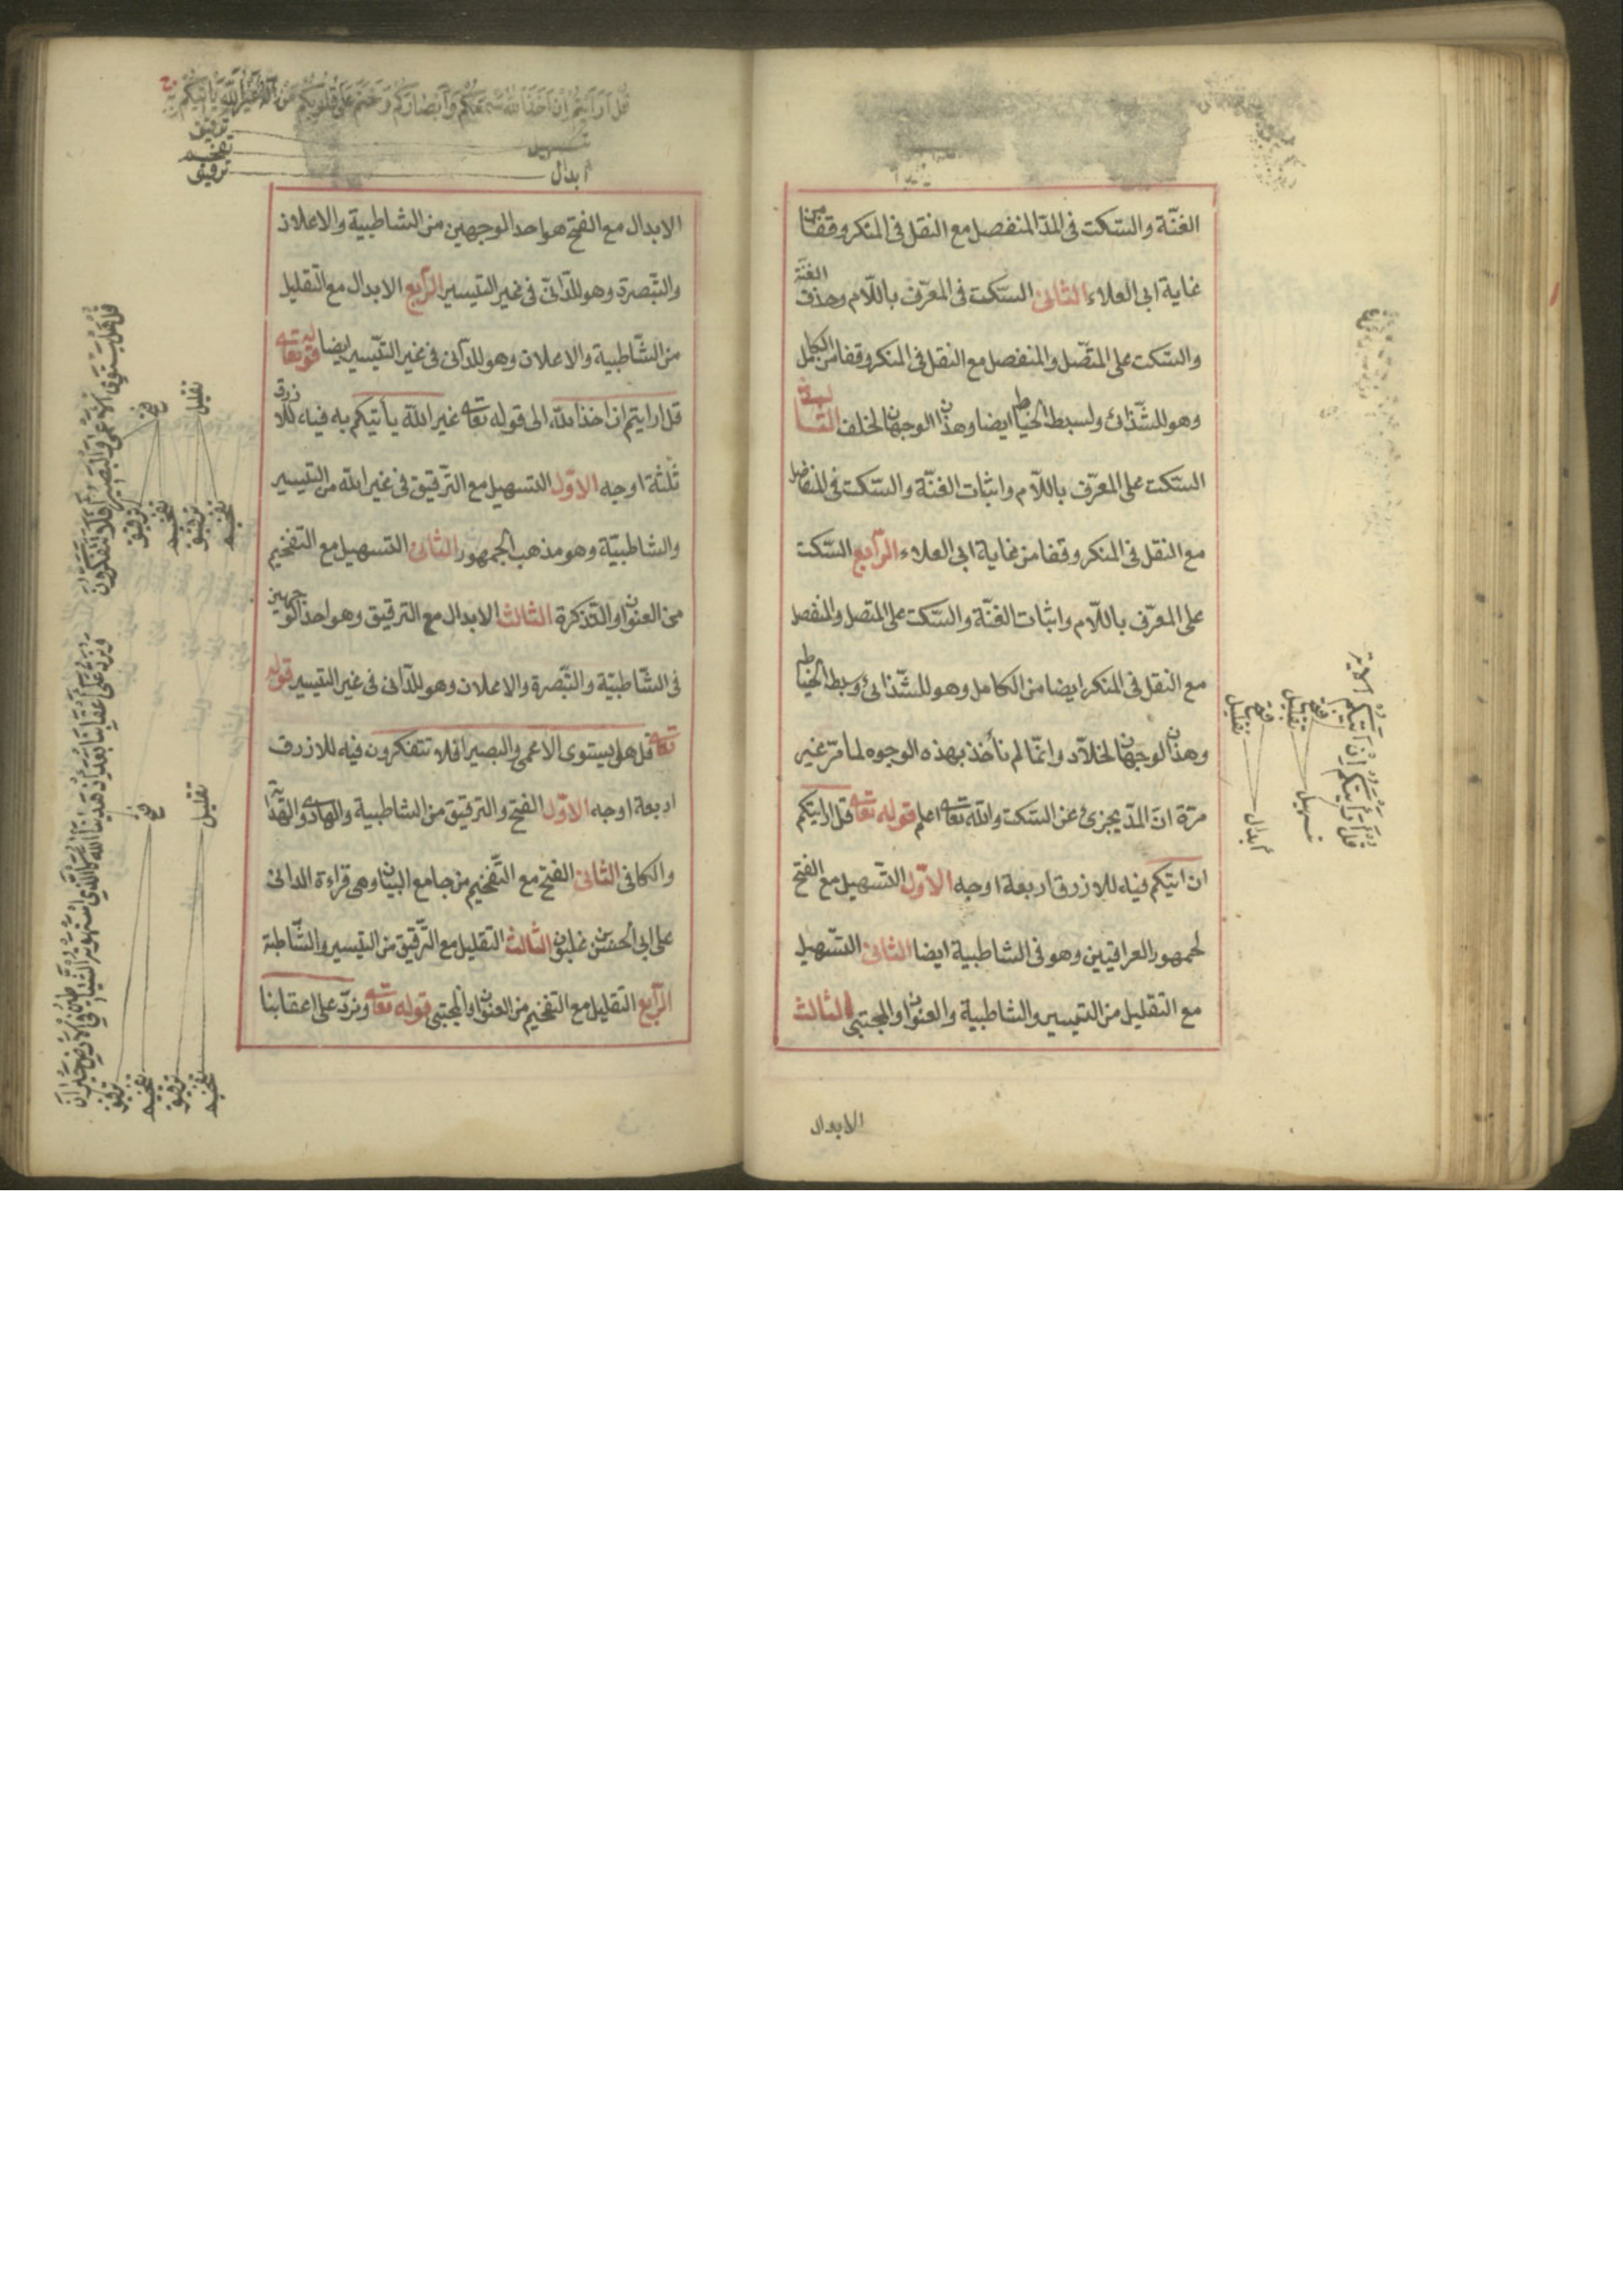 الغنّة والسّكت فى المدّ المنفصل مع النقل فى المنكر وقفا من
غاية ابى العلاء الثانى السّكت فى المعرّف باللّام وحذف الغنّة
والسّكت على المتّصل والمنفصل مع النقل فى المنكر وقفا من الكامل
وهو للشّذائ ولسبط الخياط ايضا وهذان الوجهان لخلف الثالث
السّكت على المعرّف باللّام واثبات الغنّة والسّكت فى المنفصل
مع النقل فى المنكر وقفا من غاية ابى العلاء الرّابع السّكت
على المعرّف باللّام واثبات الغنّة والسّكت على المتصل والمنفصل
مع النقل فى المنكر ايضا من الكامل وهو للشّذائ وسبط الخياط
وهذان الوجهان لخلّاد وانمّا لم نأخذ بهذه الوجوه لما مرّ غير
مرّة انّ المدّ يجزئ عن السّكت والله تعالى اعلم قوله تعالى قل ارايتكم
ان اتيكم فيه للازرق اربعة اوجه الاوّل التّسهيل مع الفتح
لجمهور العراقيين وهو فى الشاطبية ايضا الثانى التّسهيل
مع التّقليل من التيسير والشاطبية والعنوان والمجتبى الثالث
الابدال
قل ارايتكم ان اتيكم
فتح
تقليل
فتح
تقليل
تسهيل
ابدال
قُل ارَايتُم اِن اخذ الله سمعكم وابصاركم وختم على قلوبكم من اله غير الله ياتيكم به
ترقيق
تفخيم
ترقيق
تسهيل
ابدال
الابدال مع الفتح هو احد الوجهين من الشاطبية والاعلان
والتّبصرة وهو للدّانىّ فى غير التيسير الرّابع الابدال مع التّقليل
من الشّاطبية والاعلان وهو للدّانى فى غير التيّسير ايضا قوله تعالى
قل ارايتم ان اخذ الله الى قوله تعالى غير الله يأتيكم به فيه للازرق
ثلثة اوجه الاوّل التسهيل مع التّرقيق فى غير الله من التيسير
والشاطبيّة وهو مذهب الجمهور الثانى التسهيل مع التفخيم
من العنوان والتّذكرة الثالث الابدال مع الترقيق وهو احد الوجهين
فى الشّاطبيّة والتّبصرة والاعلان وهو للدّانى فى غير التيسير قوله
تعالى قل هل يستوى الاعمى والبصير افلا تتفكرون فيه للازرق
اربعة اوجه الاوّل الفتح والترقيق من الشاطبية والهادى والهداية
والكافى الثانى الفتح مع التّفخيم من جامع البيان وهى قراءة الدانى
على ابى الحسن بن غلبون الثالث التقليل مع التّرقيق من التيسير والشّاطبة
الرّابع التقليل مع التفخيم من العنوان والمجتبى قوله تعالى ونردّ على اعقابنا
قل هل يستوى الاعمى والبصير افلا تتفكرون
فتح
تقليل
ترقيق
تفخيم
ترقيق
تفخيم
ونرد على اعقابنا بعد اذ هدينا الله كالذى استهوته الشياطين فى الارض حيران
فتح
تقليل
ترقيق
تفخيم
ترقيق
تفخيم